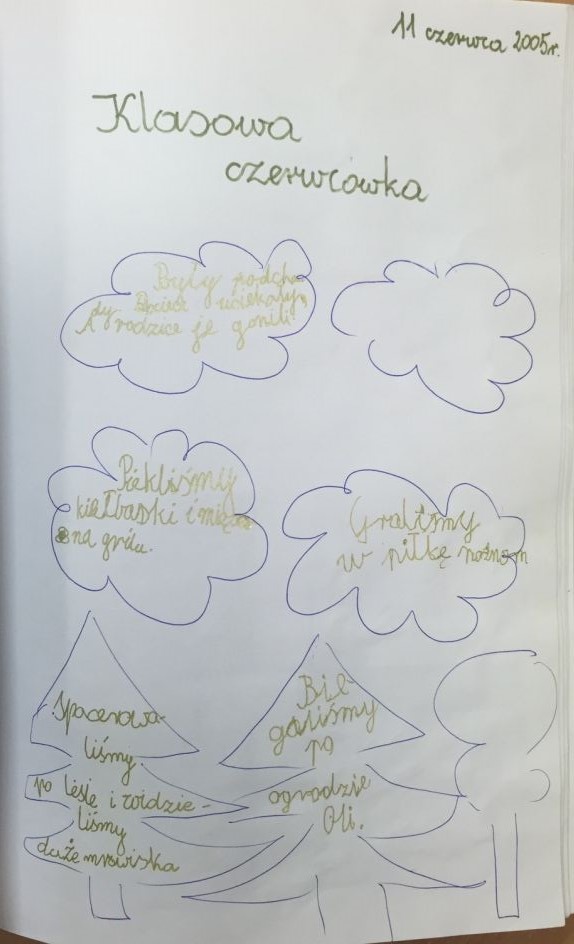 11 czerwca 2005r.
Klasowa
czerwcówka
Były podcho
dy Dzieci uciekały
A rodzice je gonili
Piekliśmy
kiełbaski i mięso
na grilu.
Graliśmy
w piłkę nożnom
Spacerowa-
liśmy
po lesie i widzie-
liśmy
duże mrowiska
Bie-
galiśmy
po
ogrodzie
Oli.